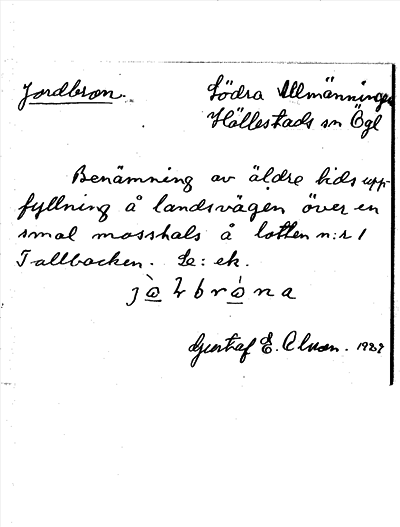 Jordbron.
Södra Allmänningen
Hällestads sn Ögl
Benämning av äldre tids upp-
fyllning å landsvägen över en
smal mosshals å lotten n:r 1
Tallbacken. Se: ek.
Gustaf E. 1929